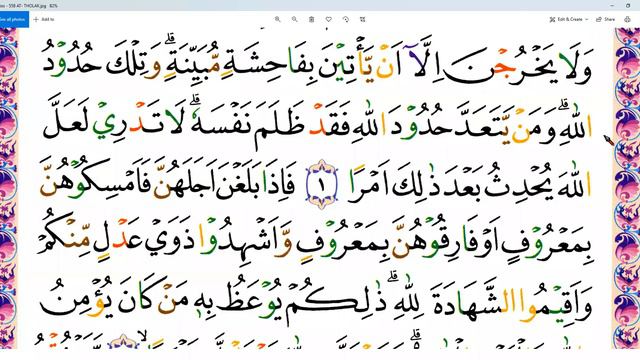 558 AT- THOLAK.jpg 82%
See all photos
Add to
Edit & Create
Share
وَلَا يَخْرُجْنَ اِلَّآ اَنْ يَّأْتِيْنَ بِفَاحِشَةٍ مُّبَيِّنَةٍ ۗ وَتِلْكَ حُدُوْدُ
اللّٰهِ ۗ وَمَنْ يَّتَعَدَّ حُدُوْدَ اللّٰهِ فَقَدْ ظَلَمَ نَفْسَهٗ ۗ لَا تَدْرِيْ لَعَلَّ
اللّٰهَ يُحْدِثُ بَعْدَ ذٰلِكَ اَمْرًا ١ فَاِذَا بَلَغْنَ اَجَلَهُنَّ فَاَمْسِكُوْهُنَّ
بِمَعْرُوْفٍ اَوْ فَارِقُوْهُنَّ بِمَعْرُوْفٍ وَّاَشْهِدُوْا ذَوَيْ عَدْلٍ مِّنْكُمْ
وَاَقِيْمُوا الشَّهَادَةَ لِلّٰهِ ۗ ذٰلِكُمْ يُوْعَظُ بِهٖ مَنْ كَانَ يُؤْمِنُ